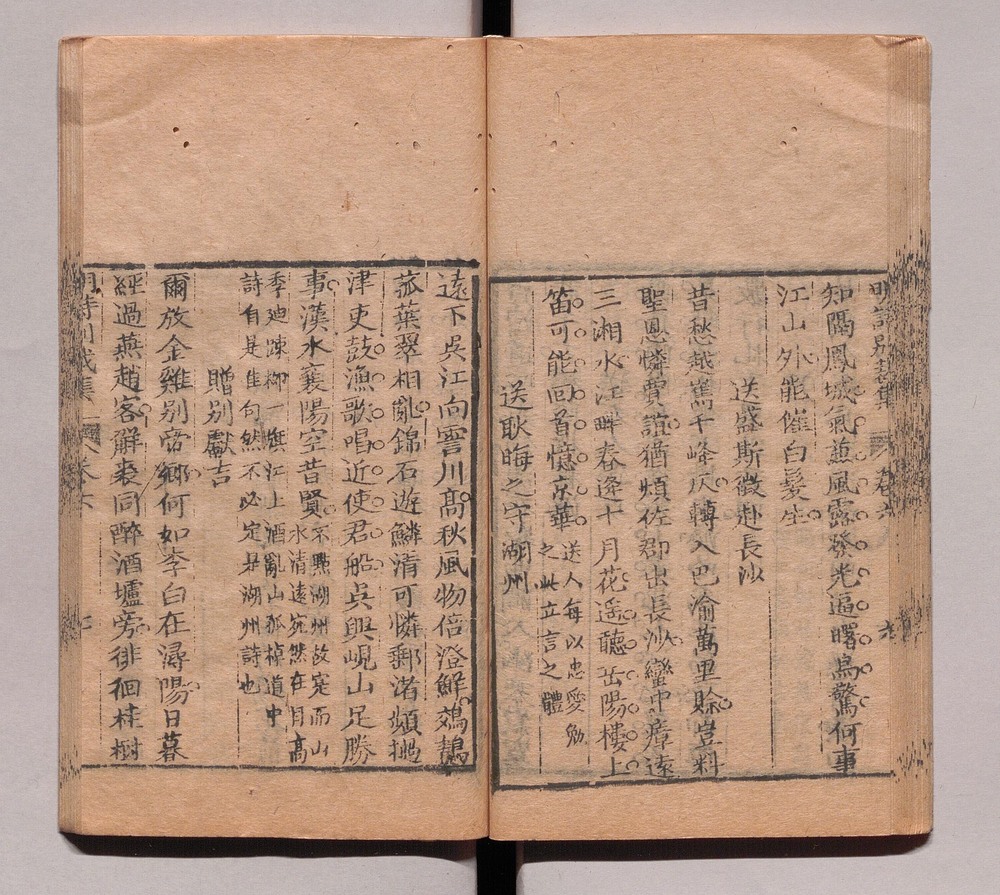 明詩別裁集 卷六
知隔鳳城氣蒸風露發光逼曙烏驚何事
江山外能催白髮生
送盛斯徵赴長沙
昔愁越嶲千峰仄轉入巴渝萬里賒豈料
聖恩憐賈誼猶煩佐郡出長沙蠻中瘴遠
三湘水江畔春逢十月花遥聽岳陽樓上
笛可能回首憶京華送人每以忠愛勉
之此立言之體
送耿晦之守湖州
遠下吳江向霅川高秋風物倍澄鮮鵁鶄
菰葉翠相亂錦石遊鱗清可憐郵渚頻撾
津吏鼓漁歌唱近使君船吳興峴山足勝
事漢水襄陽空昔賢不點湖州故寔而山
水清遠宛然在目高
季迪踈柳一旗江上酒亂山孤棹道中
詩自是佳句然不必定是湖州詩也
贈別獻吉
爾放金雞別帝鄉何如李白在潯陽日暮
經過燕趙客解裘同醉酒壚旁徘徊桂樹
明詩別裁集 卷六 七